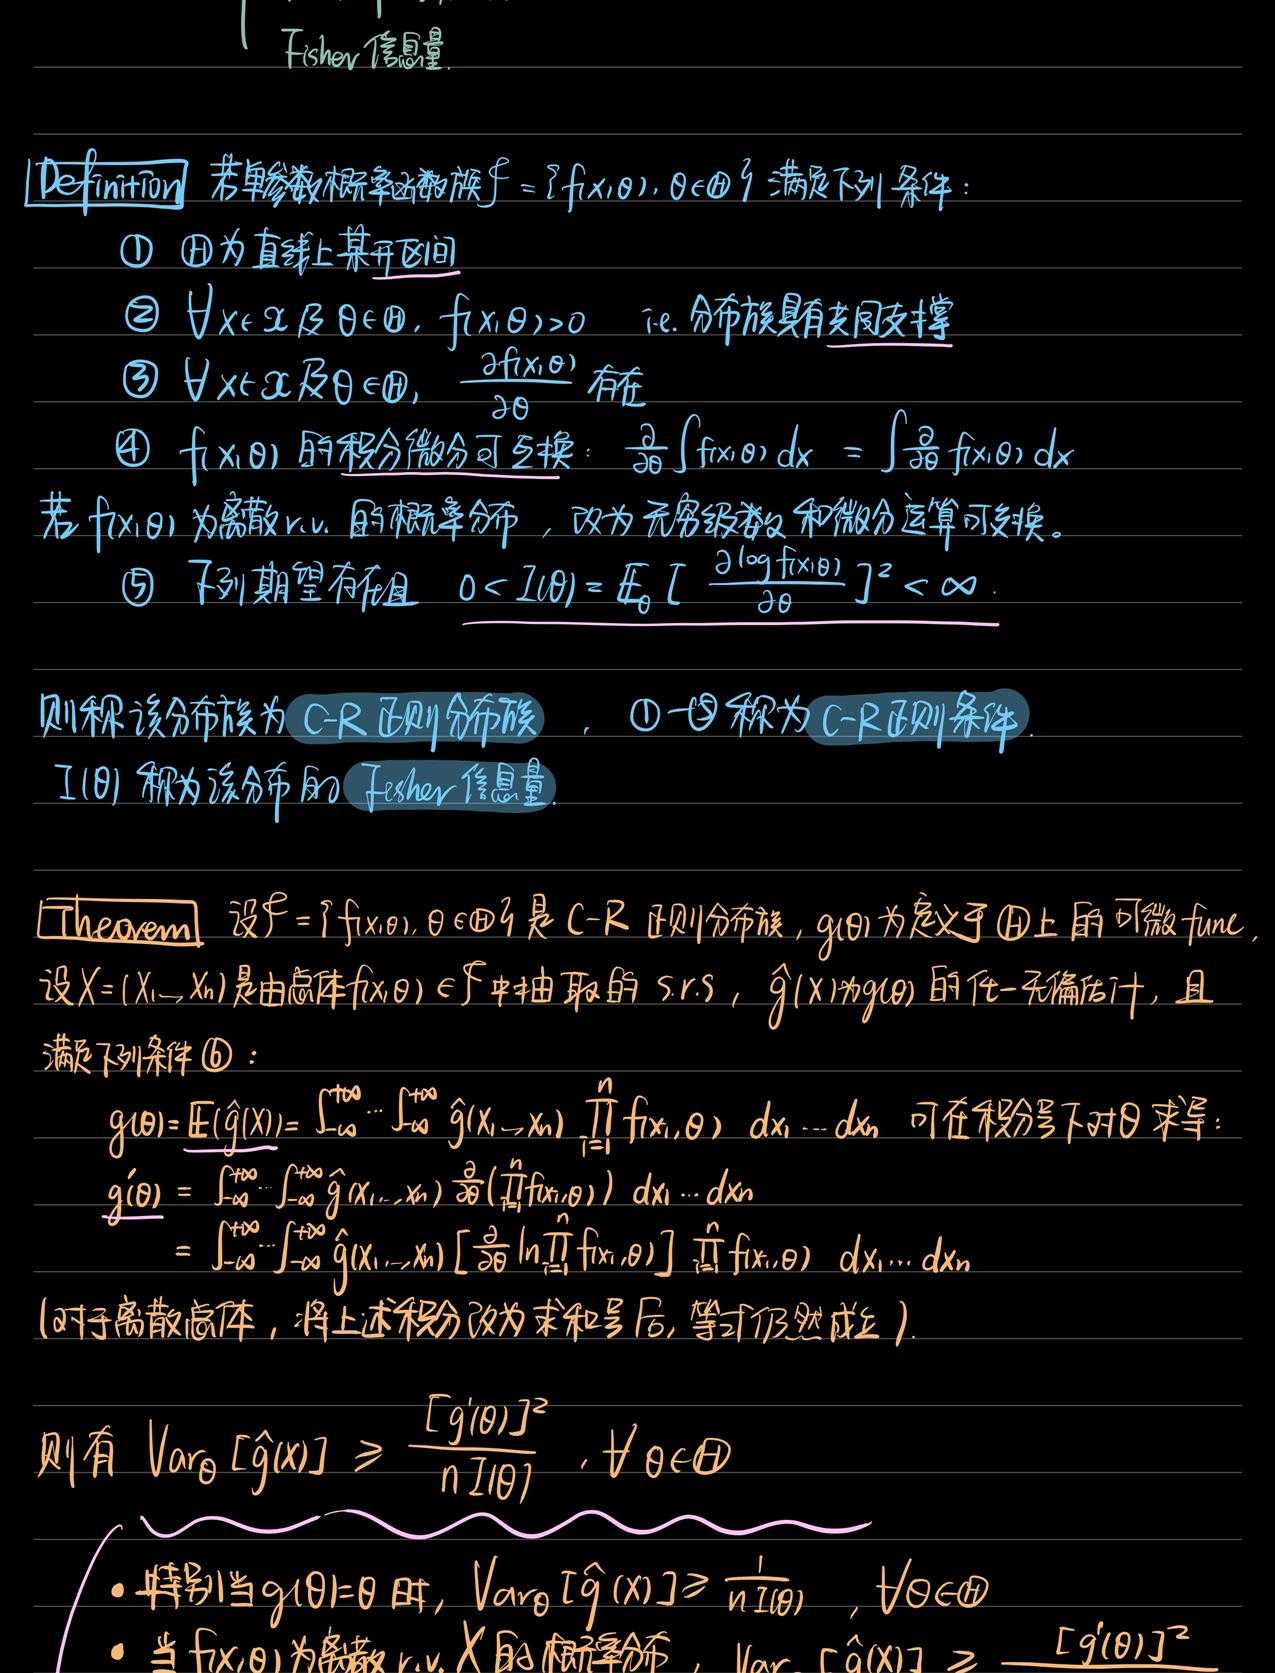 Fisher 信息量.
Definition 若单参数概率函数族 𝓕 = {f(x,θ), θ∈Θ} 满足下列条件:
① Θ为直线上某开区间
② ∀x∈𝒳 及 θ∈Θ, f(x,θ)>0 i.e. 分布族具有共同支撑
③ ∀x∈𝒳 及θ∈Θ, ∂f(x,θ)/∂θ 存在
④ f(x,θ) 的积分微分可交换: ∂/∂θ ∫f(x,θ) dx = ∫ ∂/∂θ f(x,θ) dx
若 f(x,θ) 为离散 r.v. 的概率分布, 改为 无穷级数 和微分运算可交换。
⑤ 下列期望存在且 0 < I(θ) = 𝔼_θ [ ∂log f(x,θ)/∂θ ]² < ∞.
则称该分布族为 C-R 正则分布族, ①-⑤ 称为 C-R 正则条件.
I(θ) 称为该分布的 Fisher 信息量.
Theorem 设𝓕 = {f(x,θ), θ∈Θ} 是 C-R 正则分布族, g(θ) 为定义于 Θ上的可微 func,
设X=(X₁…Xn) 是由总体f(x,θ) ∈𝓕 中抽取的 s.r.s, ĝ(X)为g(θ) 的任一无偏估计, 且
满足下列条件⑥:
g(θ)= 𝔼(ĝ(X)) = ∫_{-∞}^{+∞}…∫_{-∞}^{+∞} ĝ(x₁…xn) ∏_{i=1}^{n} f(xi,θ) dx₁…dxn 可在积分号下对θ 求导:
g'(θ) = ∫_{-∞}^{+∞}…∫_{-∞}^{+∞} ĝ(x₁…xn) ∂/∂θ (∏_{i=1}^{n} f(xi,θ)) dx₁…dxn
= ∫_{-∞}^{+∞}…∫_{-∞}^{+∞} ĝ(x₁…xn) [∂/∂θ ln∏_{i=1}^{n} f(xi,θ)] ∏_{i=1}^{n} f(xi,θ) dx₁…dxn
(对于离散总体, 将上述积分改为求和号后, 等式仍然成立).
则有 Var_θ [ĝ(X)] ≥ [g'(θ)]²/nI(θ), ∀ θ∈Θ
• 特别当g(θ)=θ 时, Var_θ [ĝ(X)] ≥ 1/nI(θ), ∀θ∈Θ
• 当 f(x,θ) 为离散 r.v. X 的概率分布, Var [ĝ(X)] ≥ [g'(θ)]²